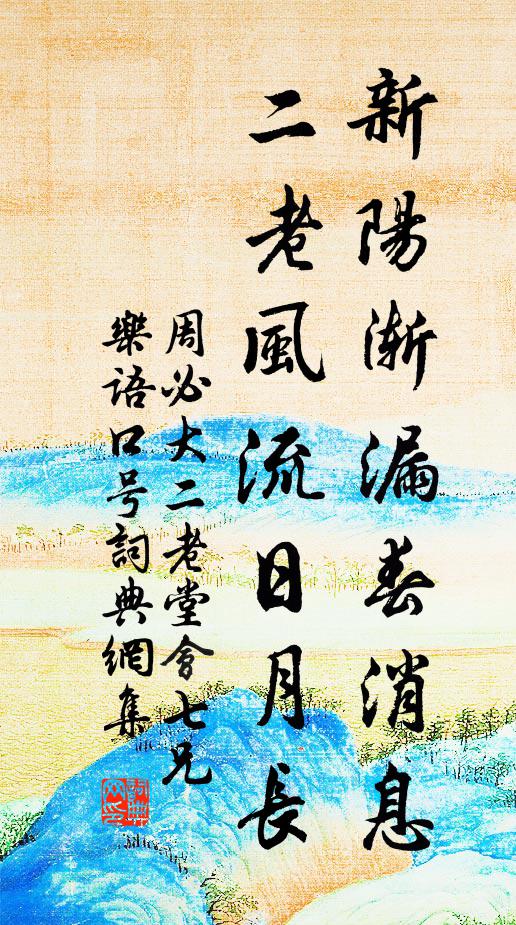 新陽漸漏春消息
二老風流日月長
周必大二老堂會七兄
樂語口号詞典網集